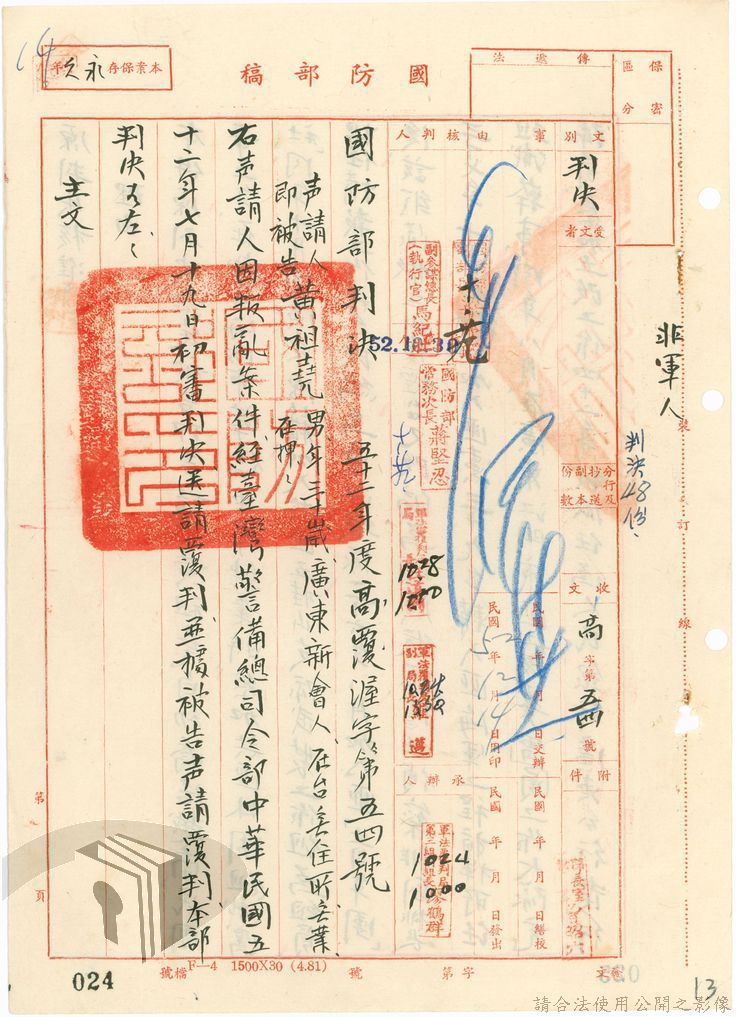 14
本案保存永久年
國防部稿
傳遞法
保密
區分
非軍人
裝
訂
線
文別
判決
受文者
分行及抄送副本份數
判決48份
收文
高字第五四號
附件
事由
民國 年 月 日交辦
民國52年12月14日用印
民國 年 月 日繕校
民國 年 月 日發出
核判人
副參謀總長
(執行官)馬紀
52.10.30
國防部
常務次長蔣堅忍
1028
1200
1024
軍法覆判局
第二組組長
1024
1000
承辦人
國防部判決 五十二年度高覆渥字第五四號
聲請人
即被告 黃祖堯 男年三十歲廣東新會人在台無住所無業
在押
右声請人因叛亂案件經臺灣警備總司令部中華民國五
十二年七月十九日初審判決送請覆判並據被告声請覆判本部
判決如左:
主文
第 頁
檔號
F—4 1500X30 (4.81)
字第 號
024
13
請合法使用公開之影像